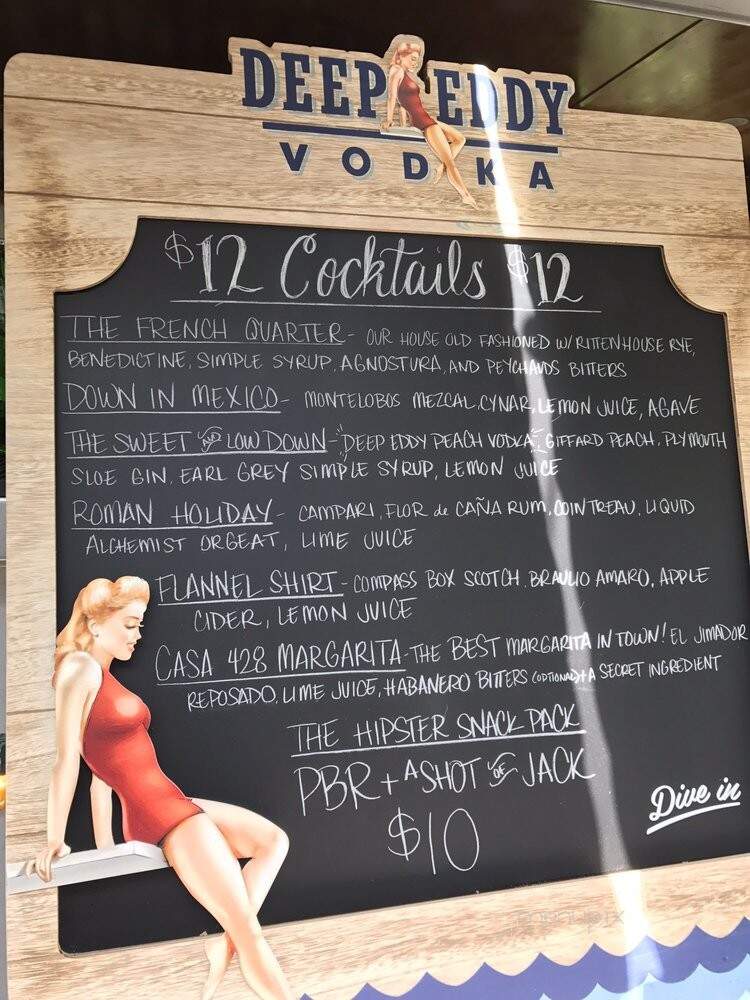 DEEP EDDY
VODKA
$12 Cocktails $12
THE FRENCH QUARTER- OUR HOUSE OLD FASHIONED W/ RITTENHOUSE RYE,
BENEDICTINE, SIMPLE SYRUP, AGNOSTURA, AND PEYCHAUDS BITTERS
DOWN IN MEXICO- MONTELOBOS MEZCAL, CYNAR, LEMON JUICE, AGAVE
THE SWEET AND LOW DOWN- DEEP EDDY PEACH VODKA, GIFFARD PEACH, PLYMOUTH
SLOE GIN, EARL GREY SIMPLE SYRUP, LEMON JUICE
ROMAN HOLIDAY- CAMPARI, FLOR de CAÑA RUM, COINTREAU, LIQUID
ALCHEMIST ORGEAT, LIME JUICE
FLANNEL SHIRT- COMPASS BOX SCOTCH, BRAULIO AMARO, APPLE
CIDER, LEMON JUICE
CASA 428 MARGARITA-THE BEST MARGARITA IN TOWN! EL JIMADOR
REPOSADO, LIME JUICE, HABANERO BITTERS (OPTIONAL)+A SECRET INGREDIENT
THE HIPSTER SNACK PACK
PBR + A SHOT OF JACK
$10
Dive in